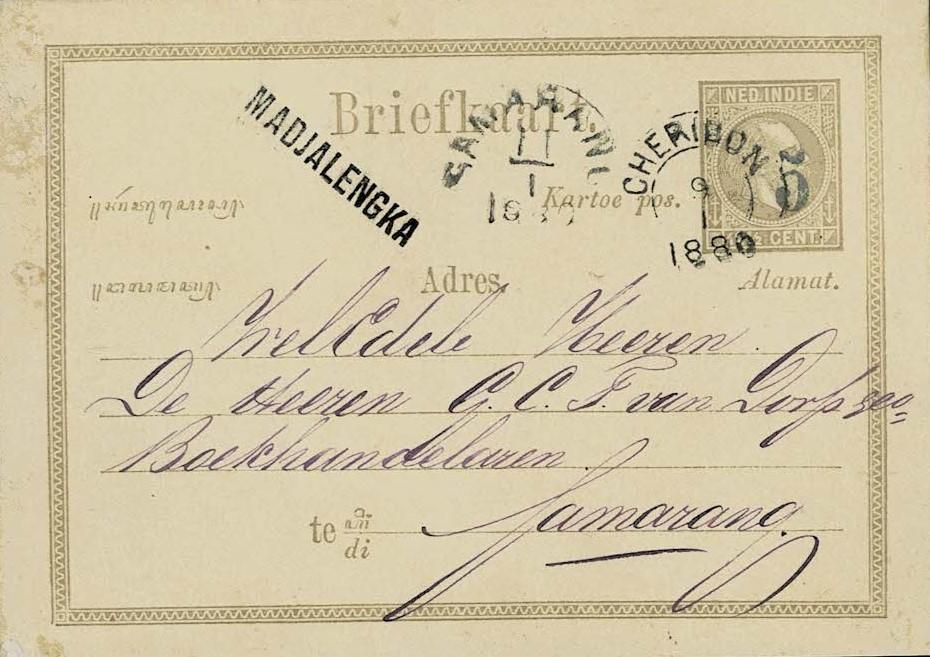 Briefkaart.
NED. INDIE
5
½ CENT.
MADJALENGKA
SAMARANG
1
CHERIBON
9
1
1880
Kartoe pos.
Adres.
Alamat.
WelEdele Heeren
De Heeren G. C. T. van Dorp &Co
Boekhandelaren
te di Samarang